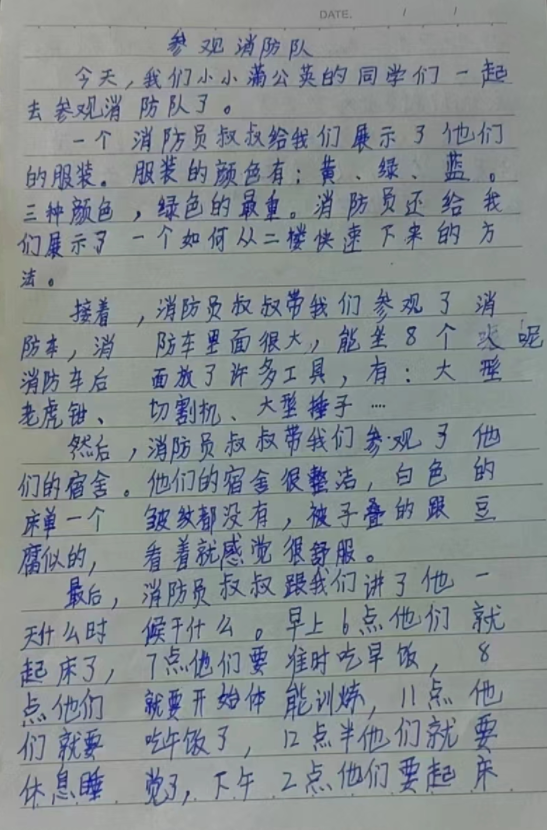 DATE. / /
参观消防队
今天,我们小小蒲公英的同学们一起
去参观消防队了。
一个消防员叔叔给我们展示了他们
的服装。服装的颜色有:黄、绿、蓝。
三种颜色,绿色的最重。消防员还给我
们展示了一个如何从二楼快速下来的方
法。
接着,消防员叔叔带我们参观了消
防车,消防车里面很大,能坐8个呢
消防车后面放了许多工具,有:大型
老虎钳、切割机、大型捶子…
然后,消防员叔叔带我们参观了他
们的宿舍。他们的宿舍很整洁,白色的
床单一个皱纹都没有,被子叠的跟豆
腐似的,看着就感觉很舒服。
最后,消防员叔叔跟我们讲了他一
天什么时候干什么。早上6点他们就
起床了,7点他们要准时吃早饭,8
点他们就要开始体能训炼,11点他
们就要吃午饭了,12点半他们就要
休息睡觉了,下午2点他们要起床